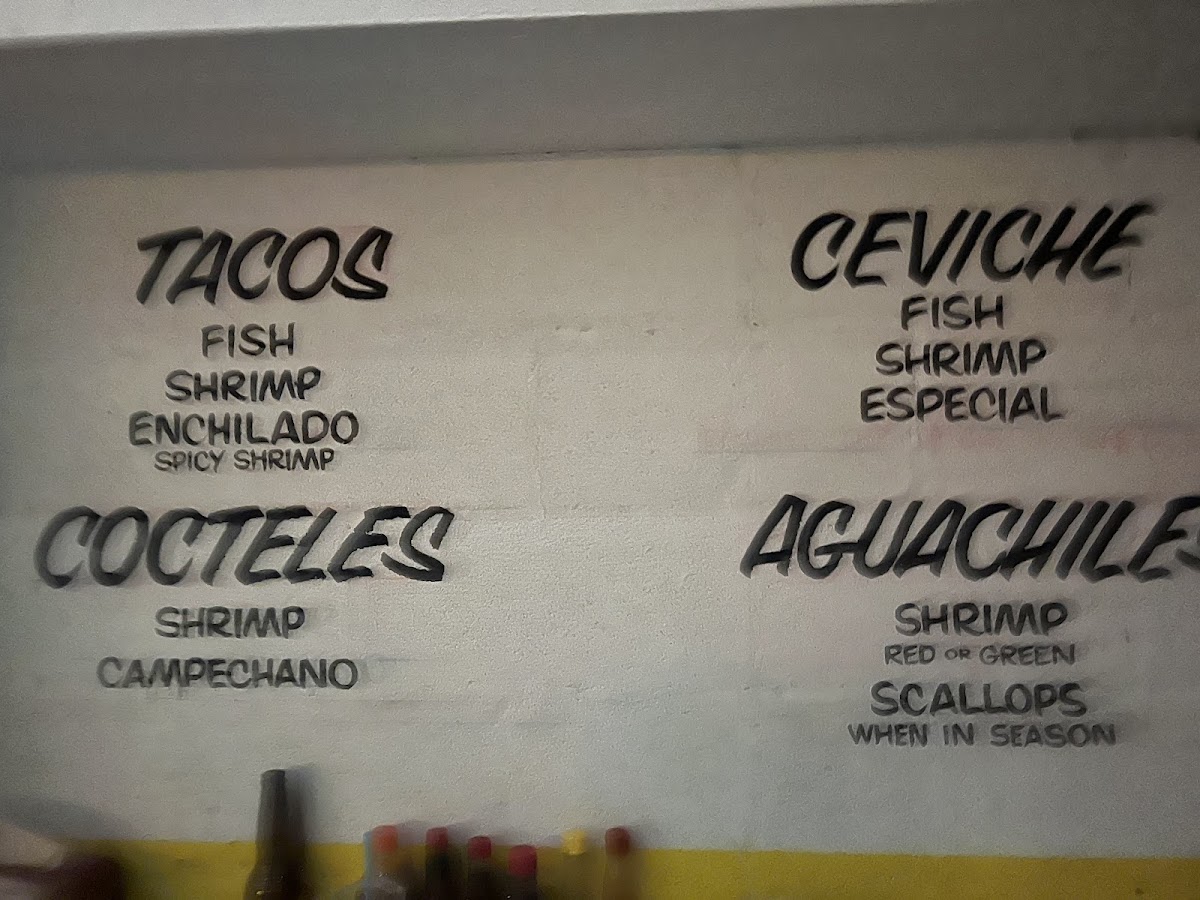 TACOS
FISH
SHRIMP
ENCHILADO
SPICY SHRIMP
COCTELES
SHRIMP
CAMPECHANO
CEVICHE
FISH
SHRIMP
ESPECIAL
AGUACHILES
SHRIMP
RED OR GREEN
SCALLOPS
WHEN IN SEASON